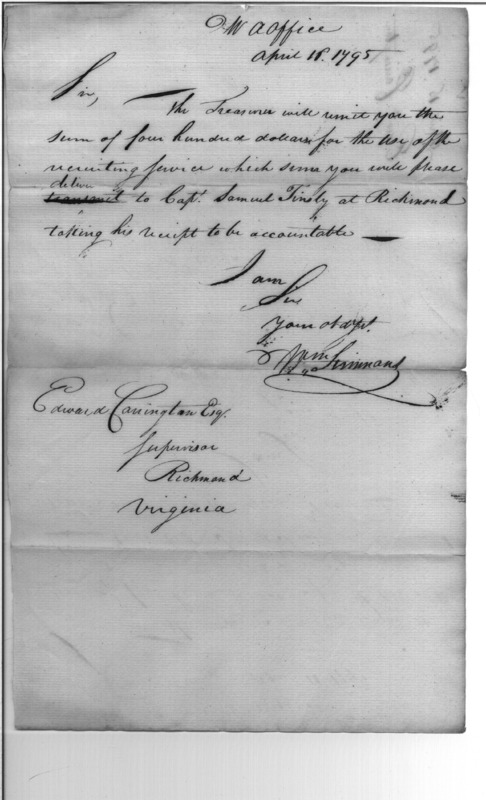 W A Office
April 18. 1795
Sir,
The Treasurer will remit you the
sum of four hundred dollars for the use of the
recruiting service which sum you will please
deliver
transmit to Capt. Samuel Tinsly at Richmond
taking his receipt to be accountable —
I am
Sir
Your obdt.
Wm Simmons
Edward Carrington Esq.
Supervisor
Richmond
Virginia